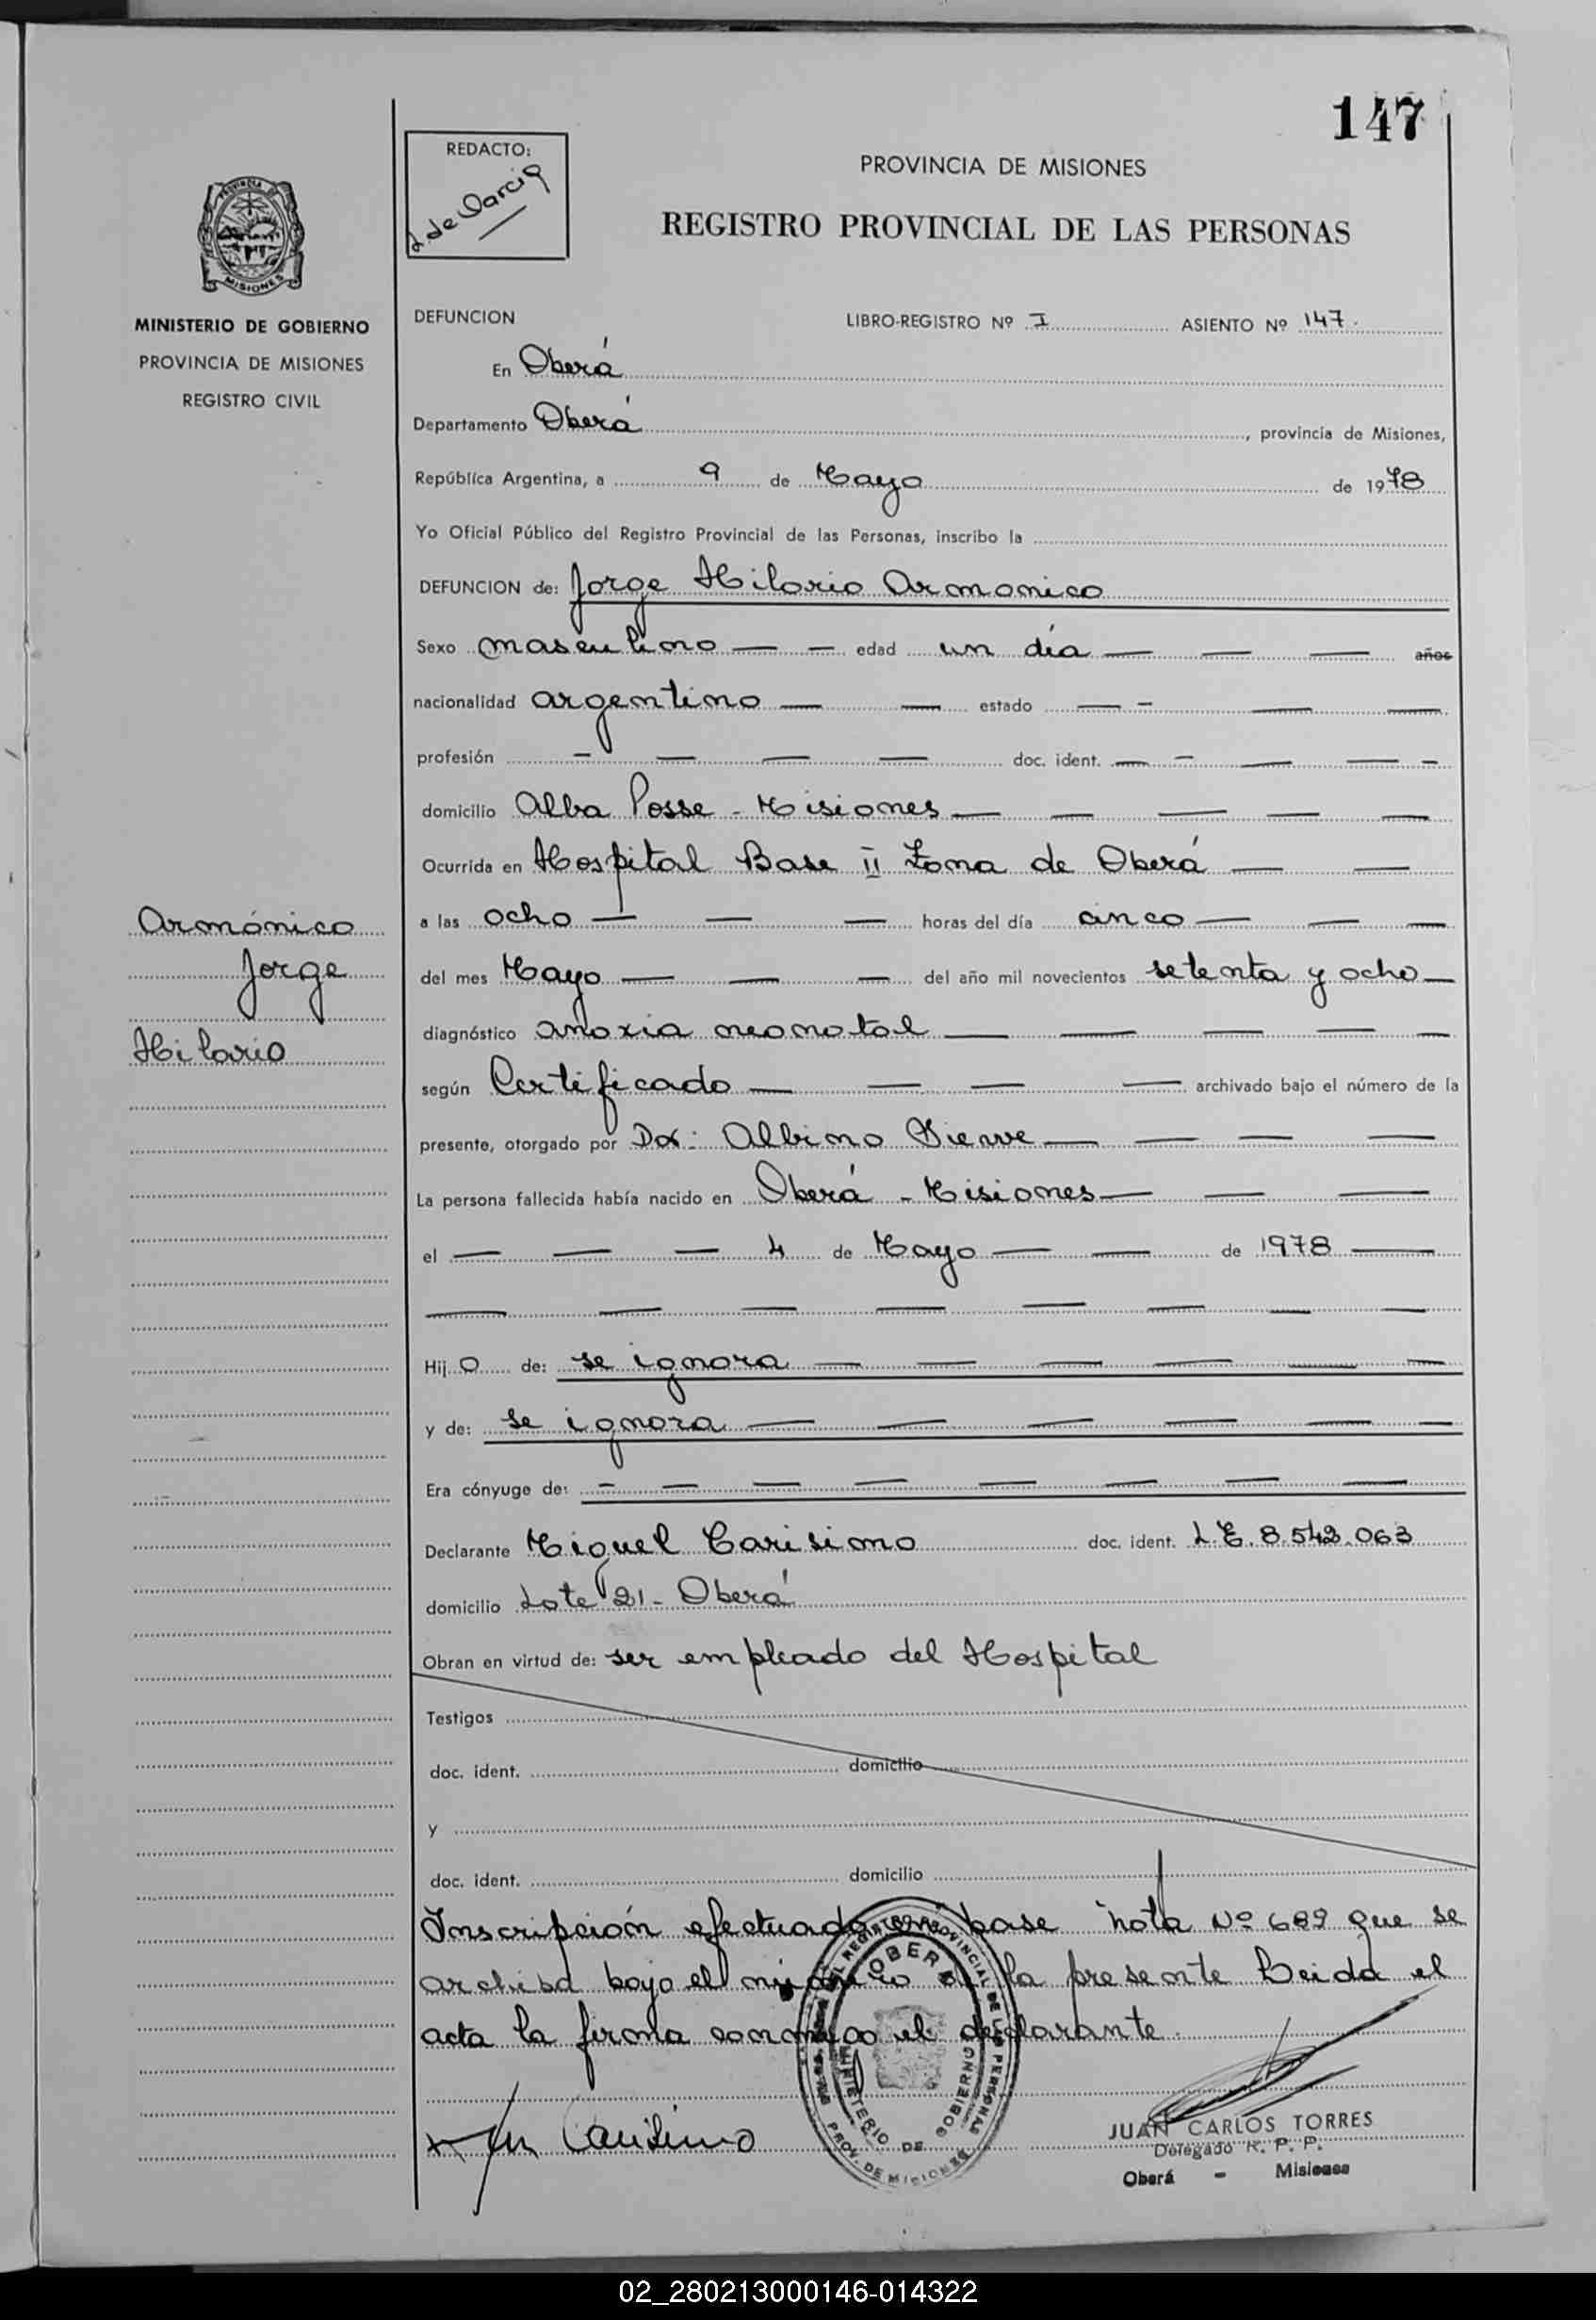 147
REDACTO:
PROVINCIA DE MISIONES
REGISTRO PROVINCIAL DE LAS PERSONAS
PROVINCIA DE
MISIONES
MINISTERIO DE GOBIERNO
PROVINCIA DE MISIONES
REGISTRO CIVIL
DEFUNCION LIBRO-REGISTRO Nº I ASIENTO Nº 147.
En Oberá
Departamento Oberá , provincia de Misiones,
República Argentina, a 9 de Mayo de 1978
Yo Oficial Público del Registro Provincial de las Personas, inscribo la
DEFUNCION de: Jorge Hilario Armonico
Sexo masculino — — edad un día — — — años
nacionalidad argentino — — estado — - — —
profesión - — — — doc. ident. — - — — -
domicilio Alba Posse - Misiones — — — — —
Ocurrida en Hospital Base II Zona de Oberá — —
Armónico
Jorge
Hilario
a las ocho — — — horas del día cinco — — —
del mes Mayo — — — del año mil novecientos setenta y ocho —
diagnóstico anoxia neonatal — — — — —
según Certificado — — — — archivado bajo el número de la
presente, otorgado por Dr: Albino — — — —
La persona fallecida había nacido en Oberá - Misiones — — —
el — — — 4 de Mayo — — de 1978 —
— — — — — — — —
Hij o de: se ignora — — — — — —
y de: se ignora — — — — — —
Era cónyuge de: - — — — — — — —
Declarante Miguel Carisimo doc. ident. L.E. 8.542.063
domicilio Lote 21 - Oberá
Obran en virtud de: ser empleado del Hospital
Testigos
doc. ident. domicilio
y
doc. ident. domicilio
Inscripción efectuada base nota Nº 689 que se
archiva bajo el número de la presente Leida el
acta la firma conmigo el declarante.
OBERA
MINISTERIO DE GOBIERNO
PROV. DE MISIONES
Carisimo
JUAN CARLOS TORRES
Delegado R. P. P.
Oberá - Misiones
02_280213000146-014322